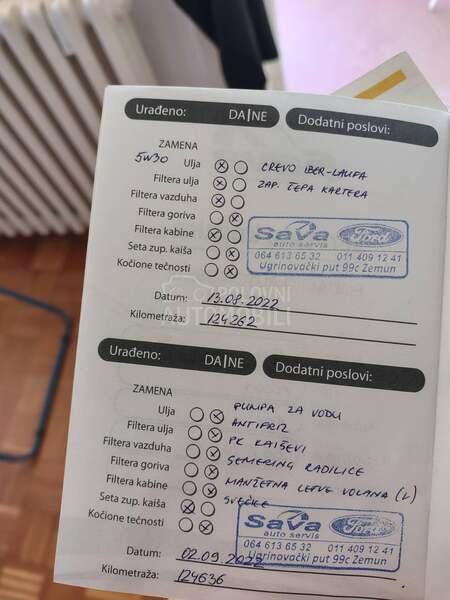 Urađeno: DA|NE Dodatni poslovi:
ZAMENA
5W30 Ulja CREVO IBER-LAUFA
Filtera ulja ZAP. ČEPA KARTERA
Filtera vazduha
Filtera goriva
Filtera kabine
Seta zup. kaiša
Kočione tečnosti
SaVa Ford
auto servis
064 613 65 32 011 409 12 41
Ugrinovački put 99c Zemun
Datum: 13.08.2022
Kilometraža: 124262
POLOVNI
AUTOMOBILI
Urađeno: DA|NE Dodatni poslovi:
ZAMENA
Ulja PUMPA ZA VODU
Filtera ulja ANTIFRIZ
Filtera vazduha PK KAIŠEVI
Filtera goriva SEMERING RADILICE
Filtera kabine MANŽETNA LETVE VOLANA (L)
Seta zup. kaiša SVEĆICE
Kočione tečnosti
SaVa Ford
auto servis
064 613 65 32 011 409 12 41
Ugrinovački put 99c Zemun
Datum: 02.09.2022
Kilometraža: 124636